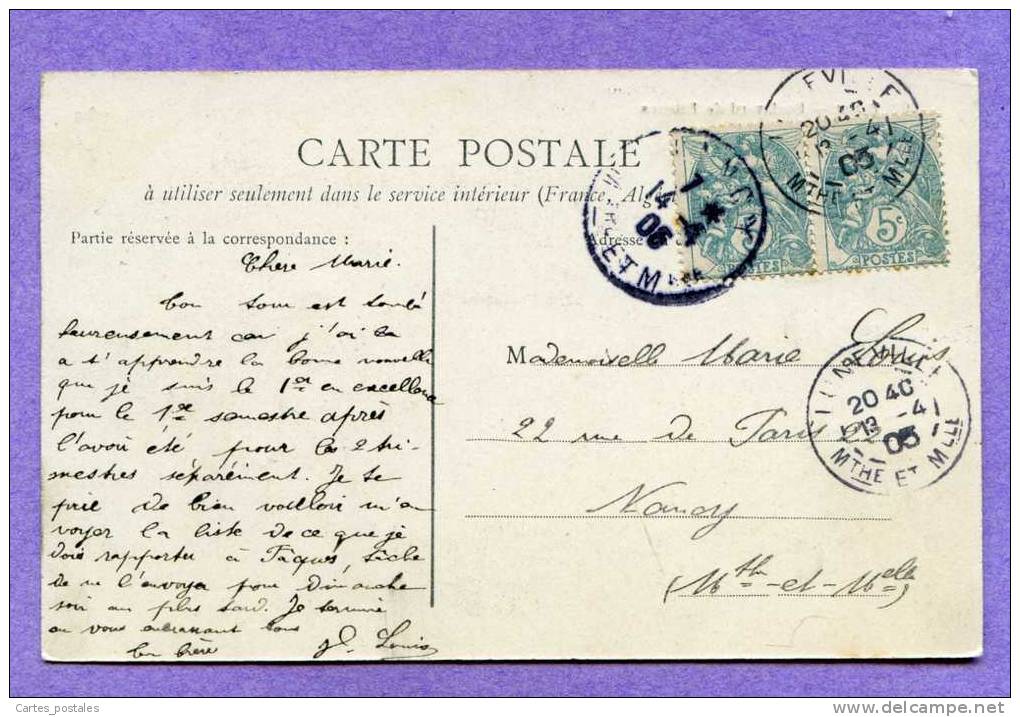 CARTE POSTALE
à utiliser seulement dans le service intérieur (France, Algé
Partie réservée à la correspondance :
Adresse
Chère Marie.
Ton sour est tombé
heureusement car j'ai
a t'apprendre la bonne nouvelle
que je suis le 1er en excellence
pour le 1er semestre après
l'avoir été pour les 2 tri-
mestres séparément. Je te
prie de bien vouloir m'en
voyer la liste de ce que je
dois rapporter à Pâques,
de me l'envoyer pour Dimanche
soir au plus tard. Je termine
en vous embrassant tous
ton frère
Louis
Mademoiselle Marie Louis
22 rue de Paris 22
Nancy
(Mthe-et-Melle)
EVILLE
20 40
13 -4
05
MTHE ET MLLE
NCY
7
14 4
05
ET M
5c
POSTES
POSTES
LUNEVILLE
20 40
13 -4
05
MTHE ET MLLE
Cartes_postales
www.delcampe.net